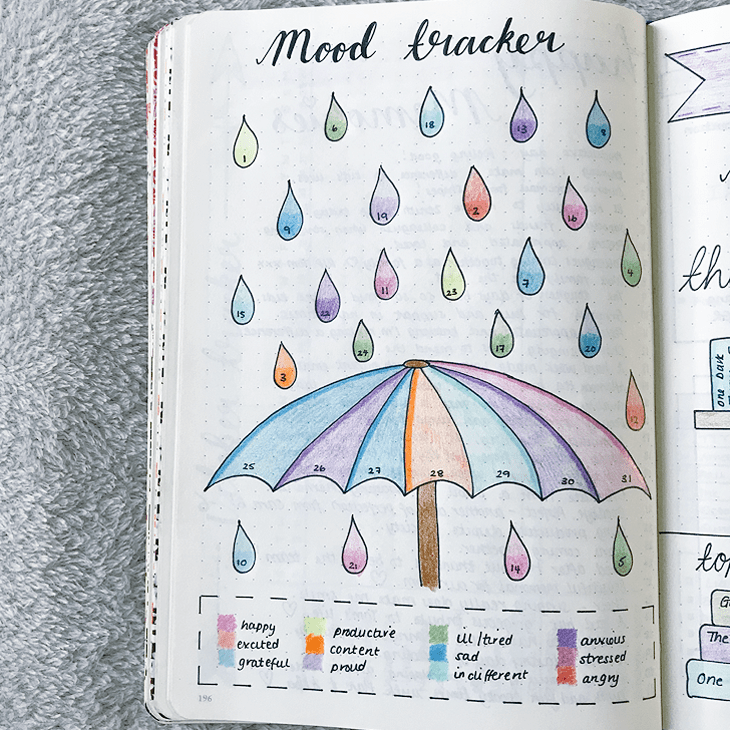 Mood tracker
1 6 18 13 8
9 19 2 16
15 22 11 23 7 4
3 24 17 20
12
25 26 27 28 29 30 31
10 21 14 5
happy productive ill/tired anxious
excited content sad stressed
grateful proud indifferent angry
196
th
one Dark
top
The
One